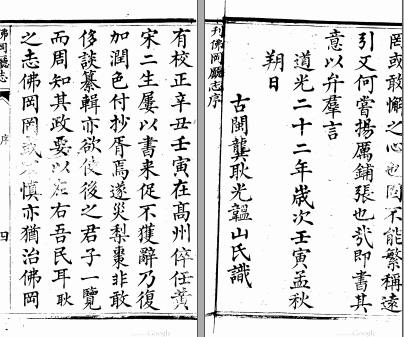 有校正辛丑壬寅在高州倅任黃
宋二生屢以書來促不獲辭乃復
加潤色付抄胥焉遂災梨棗非敢
侈談纂輯亦欲使後之君子一覽
而周知其政要以左右吾民耳耿
之志佛岡罔或慎亦猶治佛岡
佛岡廳志
序
四
罔或敢懈之心也因不能繁稱遠
引又何嘗揚厲鋪張也哉即書其
意以弁羣言
道光二十二年歲次壬寅孟秋
朔日
古閩龔耿光韞山氏識
刋佛岡廳志序
Google
Google